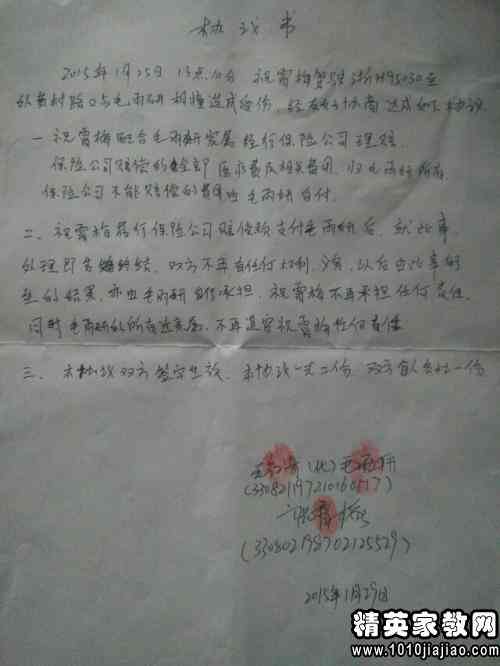 协议书
2015年1月25日13点10分 祝霄梅驾驶浙H95030在
路口与毛雨研相撞造成受伤 经双方协商达成如下协议
一 祝霄梅配合毛雨研家属 进行保险公司理赔
保险公司赔偿的金额 即医求费及相关费用 归毛雨研所有
保险公司不能赔偿的 毛雨研自付
二、祝霄梅将保险公司赔偿款支付毛雨研后 就此事
处理即 终结 双方不再有任何权利 义务 以后由此事
的结果 亦由毛雨研自行承担 祝霄梅不再承担任何责任
同时毛雨研的所有 家属 不再追究祝霄梅任何责任
三、本协议双方签字生效 本协议一式二份 双方各一份
(代) 毛雨研
(330802198702125529)
2015年1月29日
精英家教网
http://www.1010jiajiao.com